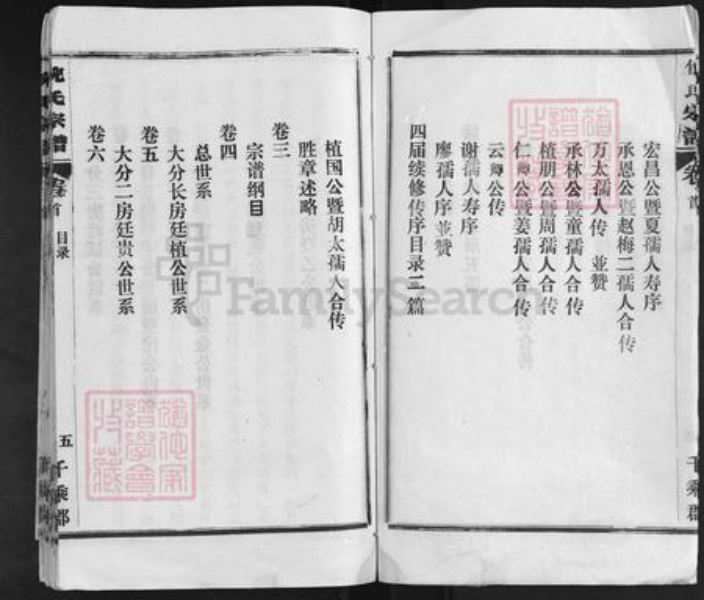 宏昌公暨夏孺人寿序
承恩公暨赵梅二孺人合传
万太孺人传 並赞
承林公暨童孺人合传
植朋公暨周孺人合传
仁卿公暨姜孺人合传
云卿公传
谢孺人寿序
廖孺人序並贊
四届续修传序目录二篇
植国公暨胡太孺人合传
胜章述略
卷三
宗谱纲目
卷四
总世系
大分长房廷植公世系
卷五
大分二房廷贵公世系
卷六
氏宗譜
卷首
目录
五
千乘郡
千乘郡
FamilySearch